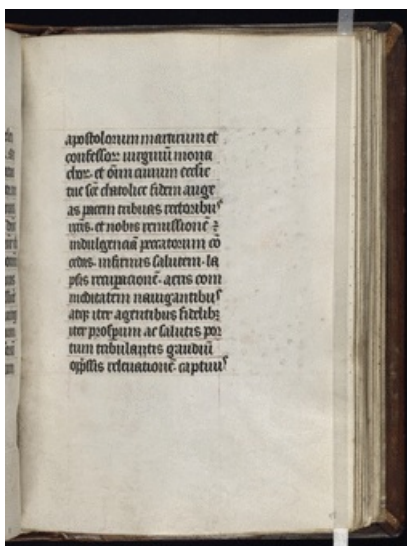 apostolorum martirum et
confessoꝝ uirginū mona
choꝝ et oīm ciuium eccl'ie
tue scē chatolice fidem auge
as pacem tribuas rectoribuˢ
nr̄is et nobis remissionē ⁊
indulgenciā peccatorum cō
cedas infirmis salutem la
psis recupacionē aeris com
moditatem nauigantibuˢ
atqꝫ iter agentibus fidelibꝫ
iter prosperum ac salutis por
tum tribulantis gaudiū
opp̄ssis releuationē captiuiˢ